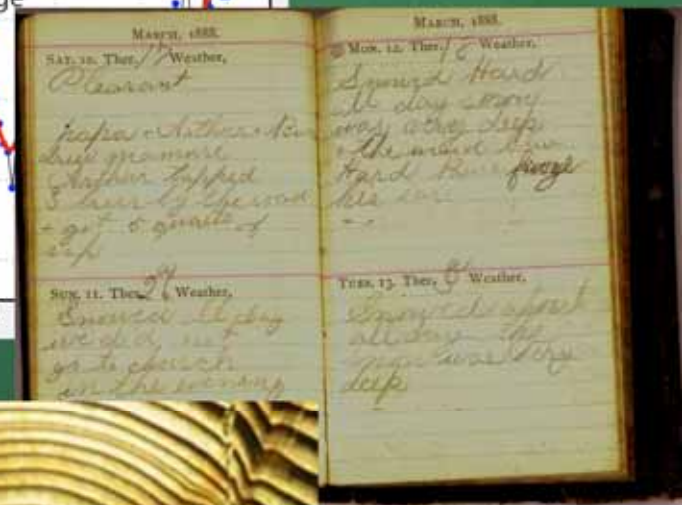 ge
MARCH, 1888.
SAT. 10. Ther. Weather,
Pleasant
papa Arthur
Arthur tapped
3 trees by the road
+ got 5 quarts of
sap
SUN. 11. Ther. 29 Weather,
Snowed all day
we did not
go to church
in the evening
MARCH, 1888.
MON. 12. Ther. 18 Weather,
Snowed Hard
all day snow
was very deep
+ the wind blew
Hard froze
his ear
TUES. 13. Ther. 8 Weather,
Snowed about
all day The
snow was very
deep